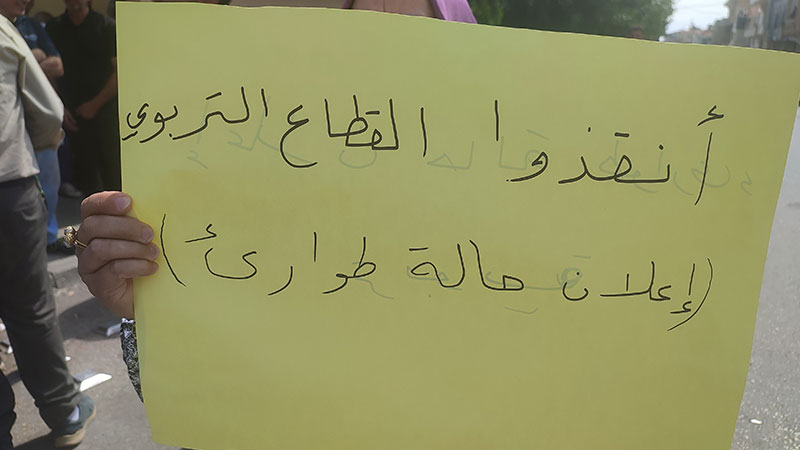 أنقذوا القطاع التربوي
(إعلان حالة طوارئ)